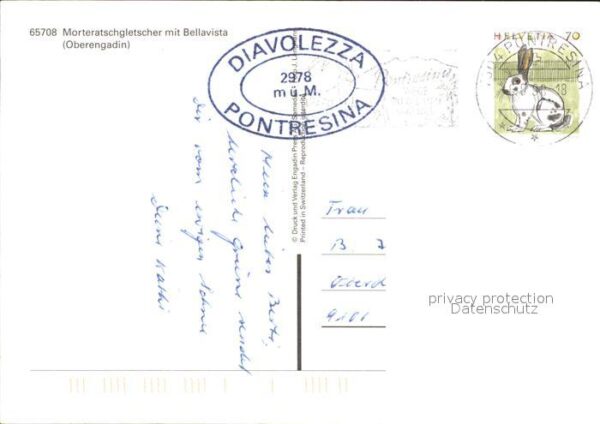 65708 Morteratschgletscher mit Bellavista
(Oberengadin)
DIAVOLEZZA
2978
m ü. M.
PONTRESINA
HELVETIA 70
PONTRESINA
18
Pontresina
© Druck und Verlag Engadin Press Samedan
Printed in Switzerland – Reproduktion
Mein lieber Berti,
herzliche Grüsse sendet
dir vom ewigen Schnee
Deine Käthi
Frau
B. J
Oberd
privacy protection
Datenschutz